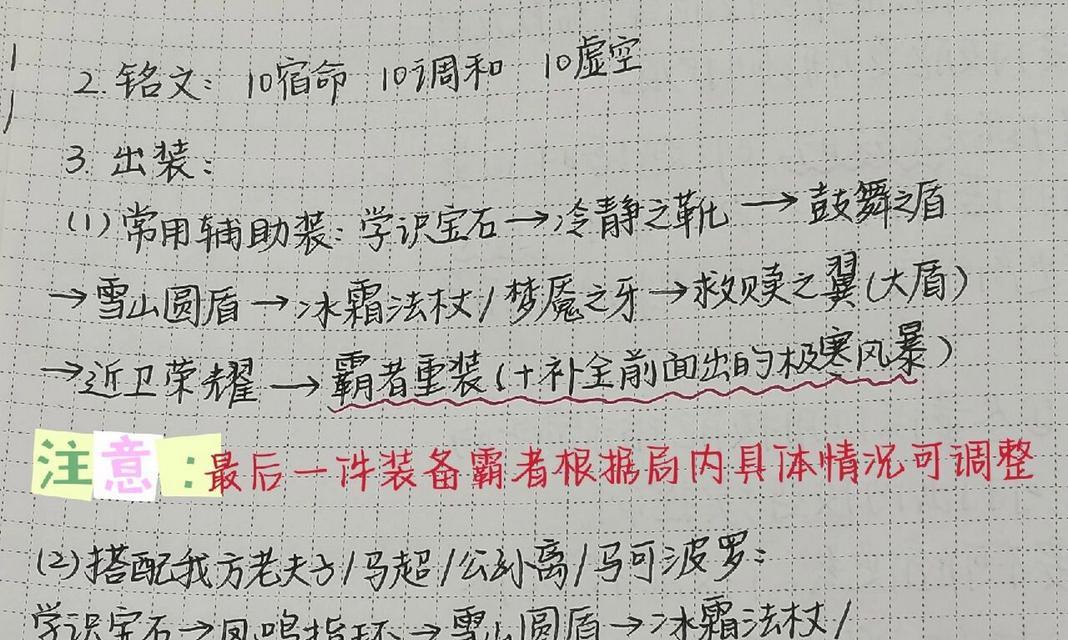 2. 铭文: 10宿命 10调和 10虚空
3. 出装:
(1) 常用辅助装: 学识宝石→冷静之靴→鼓舞之盾
→雪山圆盾→冰霜法杖/梦魇之牙→救赎之翼(大盾)
→近卫荣耀→霸者重装(+补全前面出的极寒风暴)
注意:最后一件装备霸者根据局内具体情况可调整
(2)搭配我方老夫子/马超/公孙离/马可波罗:
学识宝石→凤鸣指环→雪山圆盾→冰霜法杖/